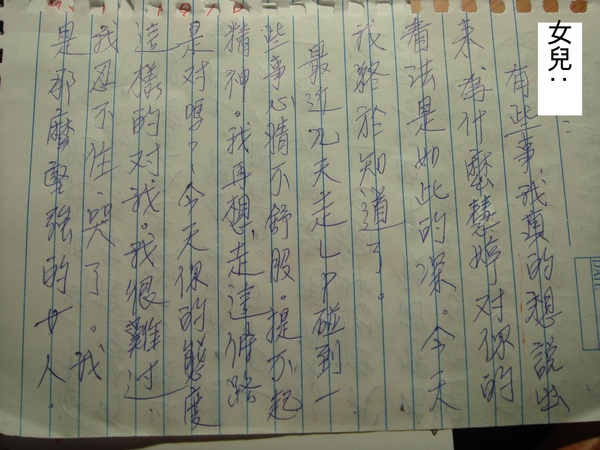 女兒：
有些事我真的想說出
來。為什麼慧婷對你的
看法是如此的深。今天
我終於知道了。
最近几天走LP碰到一
些事心情不舒服。提不起
精神。我再想，走這條路
是對嗎？今天你的態度
這樣的对我。我很難过
我忍不住哭了。我
是那麼堅強的女人。
DATE